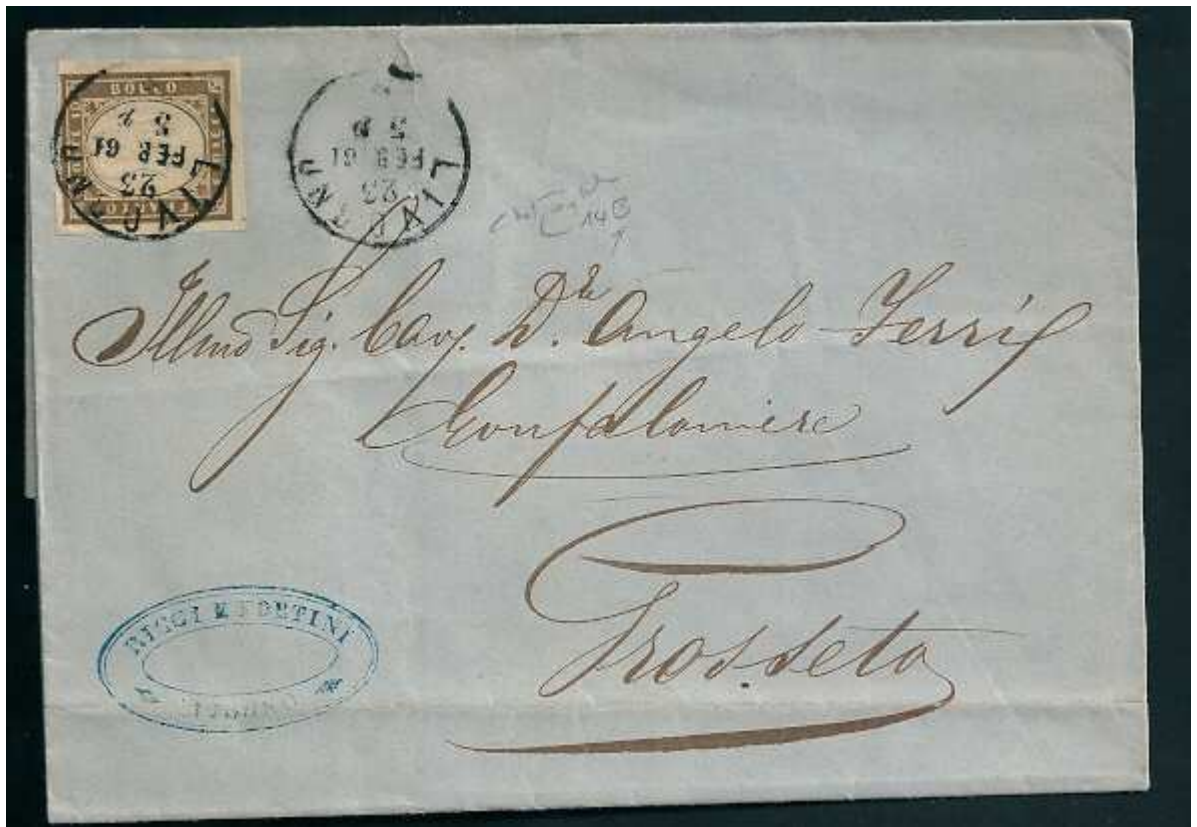 BOLLO
LIVORNO
23
FEB 61
LIVORNO
23
FEB 61
14 B
Illmo Sig. Cav. Dre Angelo Ferri
Gonfaloniere
Grosseto
RICCI E FORTINI
LIVORNO